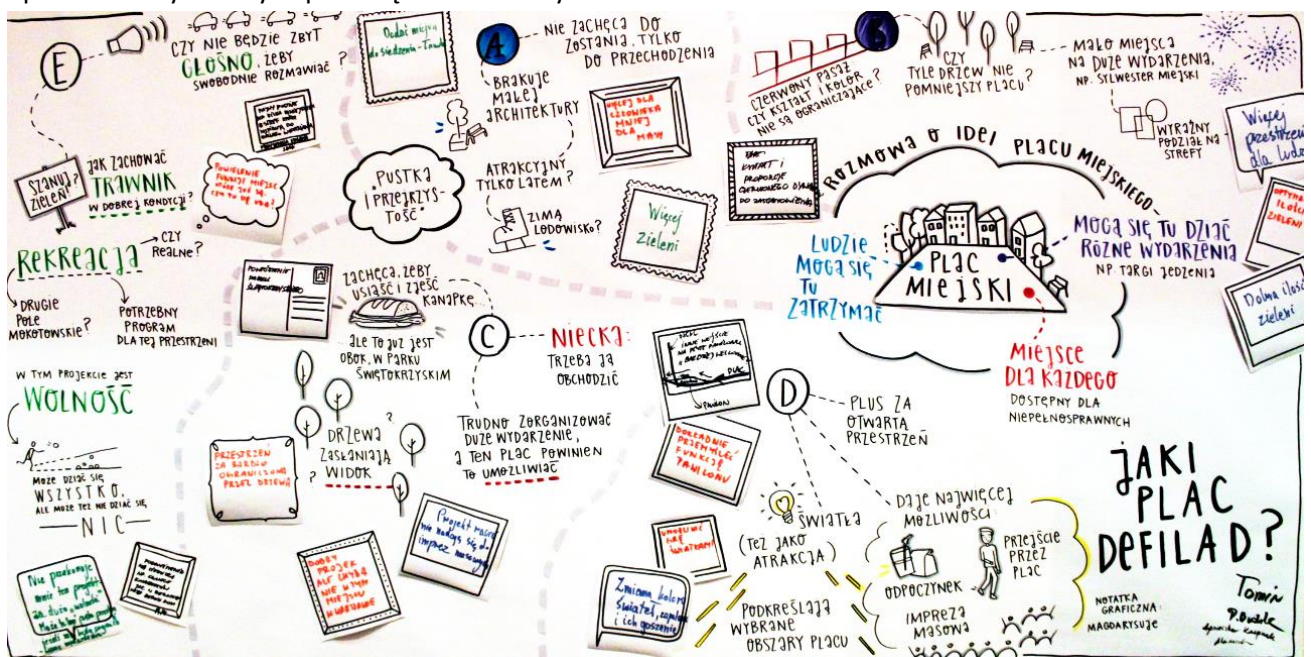 E
CZY NIE BĘDZIE ZBYT
GŁOŚNO, ŻEBY
SWOBODNIE ROZMAWIAĆ?
SZANUJ
ZIELEŃ
JAK ZACHOWAĆ
TRAWNIK
W DOBREJ KONDYCJI?
POWIELENIE
FUNKCJI MIEJSC,
REKREACJA
CZY
REALNE?
DRUGIE
POLE
MOKOTOWSKIE?
POTRZEBNY
PROGRAM
DLA TEJ PRZESTRZENI
W TYM PROJEKCIE JEST
WOLNOŚĆ
MOŻE DZIAĆ SIĘ
WSZYSTKO,
ALE MOŻE TEŻ NIE DZIAĆ SIĘ
NIC
Nie przekonuje
mnie ten projekt
Dodać miejsca
do siedzenia
A
NIE ZACHĘCA DO
ZOSTANIA, TYLKO
DO PRZECHODZENIA
BRAKUJE
MAŁEJ
ARCHITEKTURY
"PUSTKA
I PRZEJRZYS-
TOŚĆ"
ATRAKCYJNY
TYLKO LATEM?
ZIMĄ
LODOWISKO?
WIĘCEJ DLA
CZŁOWIEKA
MNIEJ
DLA
MASY
Więcej
zieleni
ZACHĘCA, ŻEBY
USIĄŚĆ I ZJEŚĆ
KANAPKĘ
ALE TO JUŻ JEST
OBOK, W PARKU
ŚWIĘTOKRZYSKIM
C
NIECKA:
TRZEBA JĄ
OBCHODZIĆ
TRUDNO ZORGANIZOWAĆ
DUŻE WYDARZENIE,
A TEN PLAC POWINIEN
TO UMOŻLIWIAĆ
DRZEWA
ZASŁANIAJĄ
WIDOK
?
PRZESTRZEŃ
ZA BARDZO
OGRANICZONA
PRZEZ DRZEWA
DOBRY
PROJEKT
ALE CHYBA
NIE W TYM
MIEJSCU
Projekt raczej
nie nadaje się do
imprez masowych
B
CZERWONY PASAŻ
CZY KSZTAŁT I KOLOR
NIE SĄ OGRANICZAJĄCE?
CZY
TYLE DRZEW NIE
POMNIEJSZY PLACU?
MAŁO MIEJSCA
NA DUŻE WYDARZENIA,
NP. SYLWESTER MIEJSKI
WYRAŹNY
PODZIAŁ NA
STREFY
Więcej
przestrzeni
dla ludzi
ZIELENI
Dobra ilość
zieleni
ROZMOWA O IDEI PLACU MIEJSKIEGO
PLAC
MIEJSKI
LUDZIE
MOGĄ SIĘ
TU
ZATRZYMAĆ
MOGĄ SIĘ TU DZIAĆ
RÓŻNE WYDARZENIA
NP. TARGI JEDZENIA
MIEJSCE
DLA KAŻDEGO
DOSTĘPNY DLA
NIEPEŁNOSPRAWNYCH
D
PLUS ZA
OTWARTĄ
PRZESTRZEŃ
DOKŁADNIE
PRZEMYŚLEĆ
FUNKCJĘ
PAWILONU
ŚWIATŁA
(TEŻ JAKO
ATRAKCJA)
PODKREŚLAJĄ
WYBRANE
OBSZARY PLACU
DAJE NAJWIĘCEJ
MOŻLIWOŚCI:
ODPOCZYNEK
PRZEJŚCIE
PRZEZ
PLAC
IMPREZA
MASOWA
JAKI
PLAC
DEFILAD?
NOTATKA
GRAFICZNA:
MAGDARYSUJE